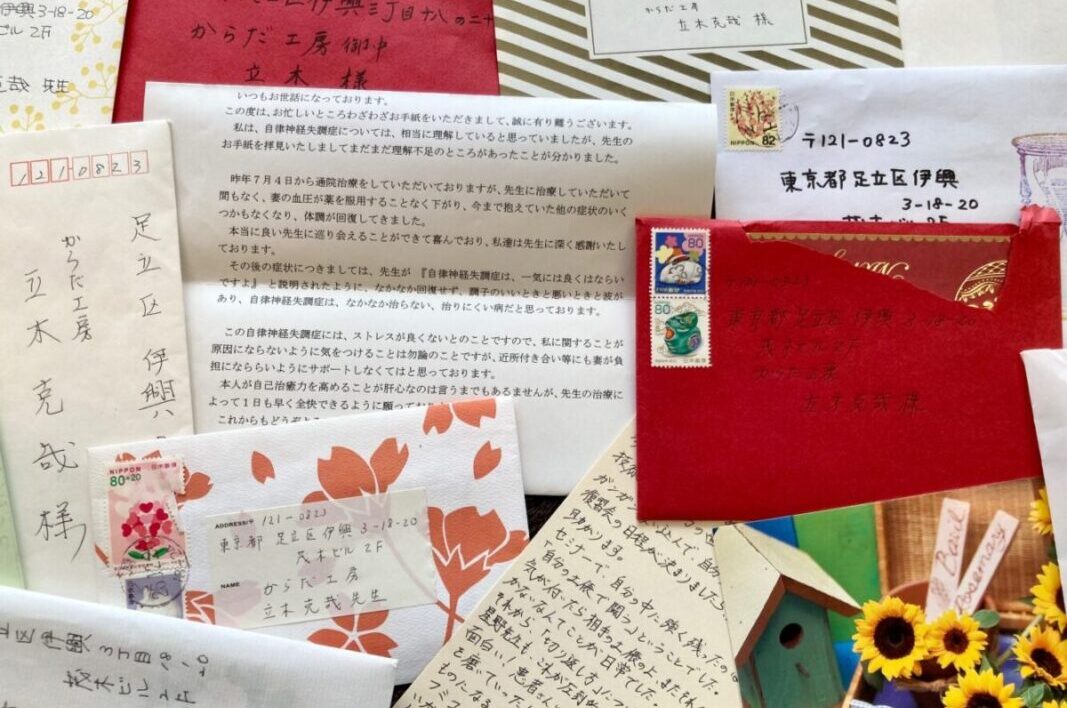 伊興3-18-20
ビル 2F
からだ工房 御中
立木 様
からだ工房
立木克哉 様
いつもお世話になっております。
この度は、お忙しいところわざわざお手紙をいただきまして、誠に有り難うございます。
私は、自律神経失調症については、相当に理解していると思っていましたが、先生の
お手紙を拝見いたしましてまだまだ理解不足のところがあったことが分かりました。
昨年7月4日から通院治療をしていただいておりますが、先生に治療していただいて
間もなく、妻の血圧が薬を服用することなく下がり、今まで抱えていた他の症状のいく
つかもなくなり、体調が回復してきました。
本当に良い先生に巡り会えることができて喜んでおり、私達は先生に深く感謝いたし
ております。
その後の症状につきましては、先生が『自律神経失調症は、一気には良くはならい
ですよ』と説明されたように、なかなか回復せず、調子のいいときと悪いときと波が
あり、自律神経失調症は、なかなか治らない、治りにくい病だと思っております。
この自律神経失調症には、ストレスが良くないとのことですので、私に関することが
原因にならないように気をつけることは勿論のことですが、近所付き合い等にも妻が負
担になららいようにサポートしなくてはと思っております。
本人が自己治癒力を高めることが肝心なのは言うまでもあるませんが、先生の治療に
よって1日も早く全快できるように願ってお
これからもどうぞよ
NIPPON 82
〒121-0823
東京都足立区伊興
3-18-20
1210823
足立区 伊興
からだ工房
立木克哉様
80
80
東京都足立区 伊興
からだ工房
立木克哉様
NIPPON
80+20
ADDRESS/〒 121-0823
東京都 足立区伊興 3-18-20
茂木ビル 2F
NAME からだ工房
立木克哉先生
立区伊興 3丁目18-20
ビル2F
復習会の日程が決まりましたら
助かります。
セミナーで自分の中に強く残ったのは
「自分の土俵で闘う」ということでした。
気が付いたら相手の土俵の上
かないなんてことが日常でした。
それから「切り返し方」
星野先生もこれが圧倒
面白い!患者さん
と磨いていった
ものになる
Basil
Rosemary